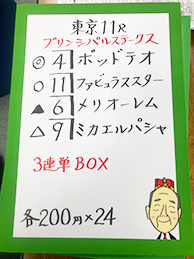 東京11R
プリンシパルステークス
◎4ポッドテオ
○11ファビュラススター
▲6メリオーレム
△9ミカエルパシャ
3連単BOX
各200円×24